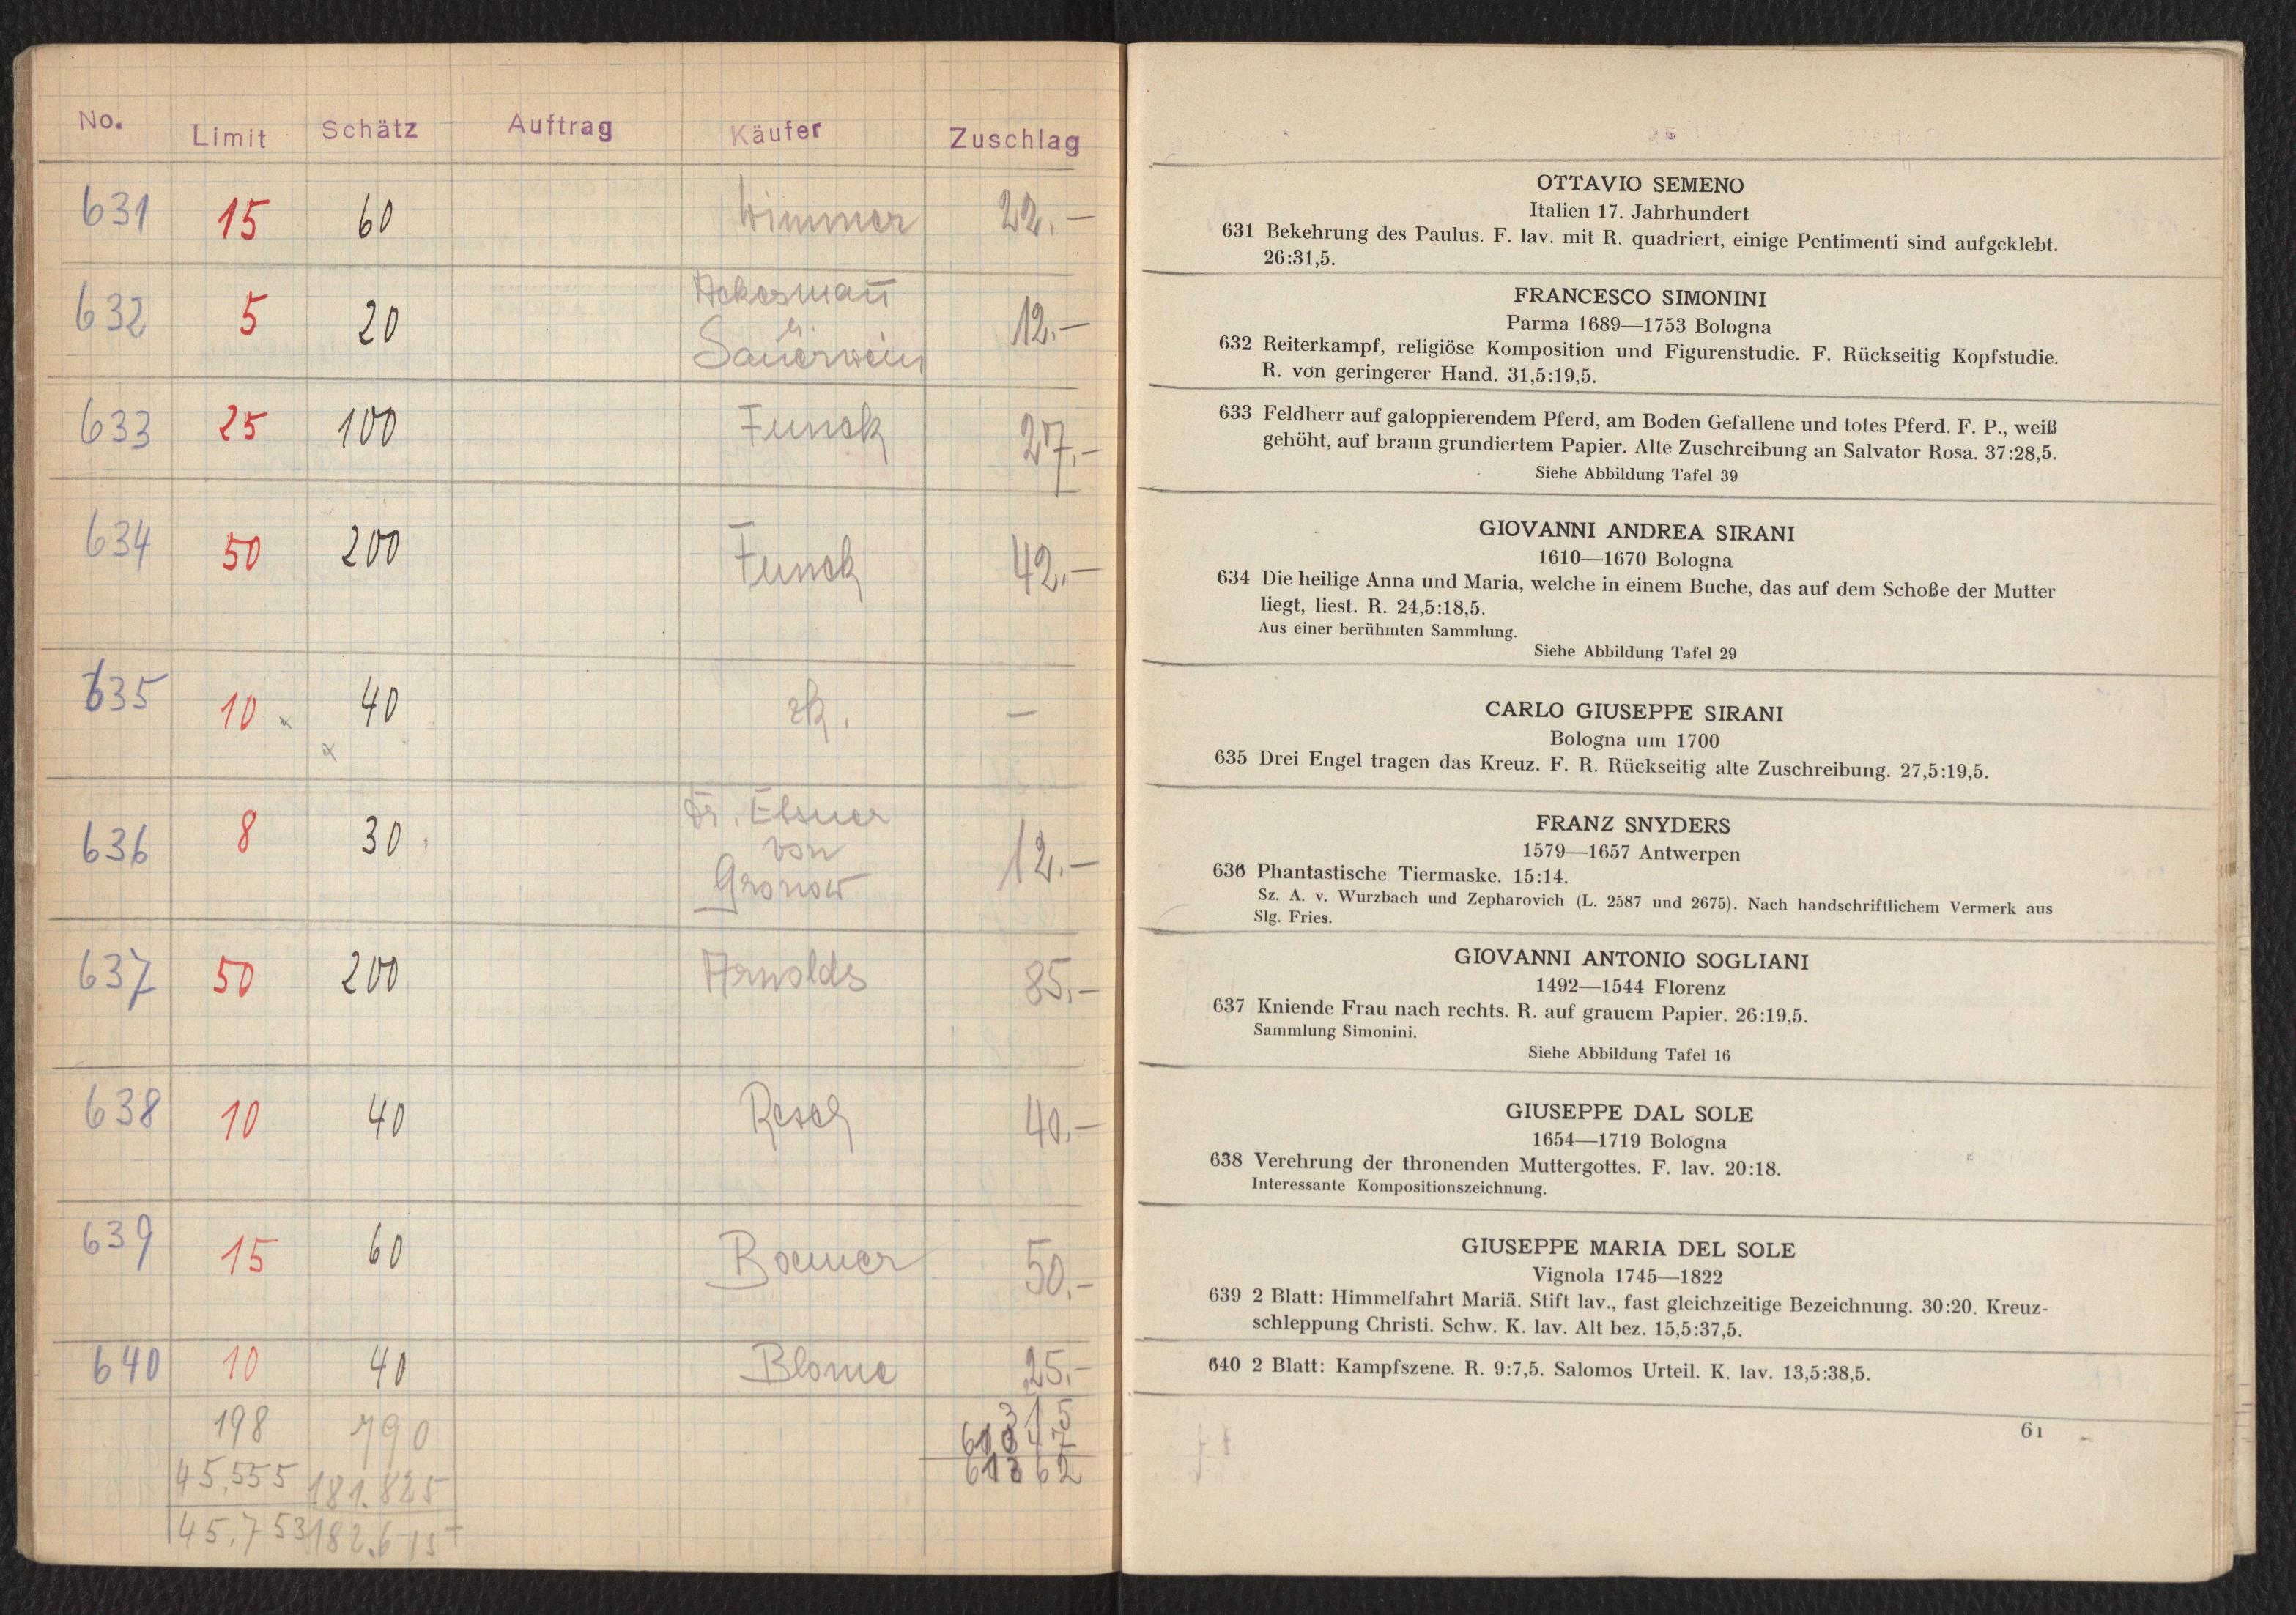 No. Limit Schätz Auftrag Käufer Zuschlag
631 15 60 Wimmer 22.—
632 5 20 Ackermann
u.
Sauerwein 12.—
633 25 100 Funck 27.—
634 50 200 Funck 42.—
635 10 40 zk. —
636 8 30 Dr. Elsner
von
Gronow 12.—
637 50 200 Arnolds 85.—
638 10 40 Resch 40.—
639 15 60 Boerner 50.—
640 10 40 Blome 25.—
198 790 315
45.555 181.825
45.753 182.615
OTTAVIO SEMENO
Italien 17. Jahrhundert
631 Bekehrung des Paulus. F. lav. mit R. quadriert, einige Pentimenti sind aufgeklebt.
26:31,5.
FRANCESCO SIMONINI
Parma 1689—1753 Bologna
632 Reiterkampf, religiöse Komposition und Figurenstudie. F. Rückseitig Kopfstudie.
R. von geringerer Hand. 31,5:19,5.
633 Feldherr auf galoppierendem Pferd, am Boden Gefallene und totes Pferd. F. P., weiß
gehöht, auf braun grundiertem Papier. Alte Zuschreibung an Salvator Rosa. 37:28,5.
Siehe Abbildung Tafel 39
GIOVANNI ANDREA SIRANI
1610—1670 Bologna
634 Die heilige Anna und Maria, welche in einem Buche, das auf dem Schoße der Mutter
liegt, liest. R. 24,5:18,5.
Aus einer berühmten Sammlung.
Siehe Abbildung Tafel 29
CARLO GIUSEPPE SIRANI
Bologna um 1700
635 Drei Engel tragen das Kreuz. F. R. Rückseitig alte Zuschreibung. 27,5:19,5.
FRANZ SNYDERS
1579—1657 Antwerpen
636 Phantastische Tiermaske. 15:14.
Sz. A. v. Wurzbach und Zepharovich (L. 2587 und 2675). Nach handschriftlichem Vermerk aus
Slg. Fries.
GIOVANNI ANTONIO SOGLIANI
1492—1544 Florenz
637 Kniende Frau nach rechts. R. auf grauem Papier. 26:19,5.
Sammlung Simonini.
Siehe Abbildung Tafel 16
GIUSEPPE DAL SOLE
1654—1719 Bologna
638 Verehrung der thronenden Muttergottes. F. lav. 20:18.
Interessante Kompositionszeichnung.
GIUSEPPE MARIA DEL SOLE
Vignola 1745—1822
639 2 Blatt: Himmelfahrt Mariä. Stift lav., fast gleichzeitige Bezeichnung. 30:20. Kreuz-
schleppung Christi. Schw. K. lav. Alt bez. 15,5:37,5.
640 2 Blatt: Kampfszene. R. 9:7,5. Salomos Urteil. K. lav. 13,5:38,5.
61